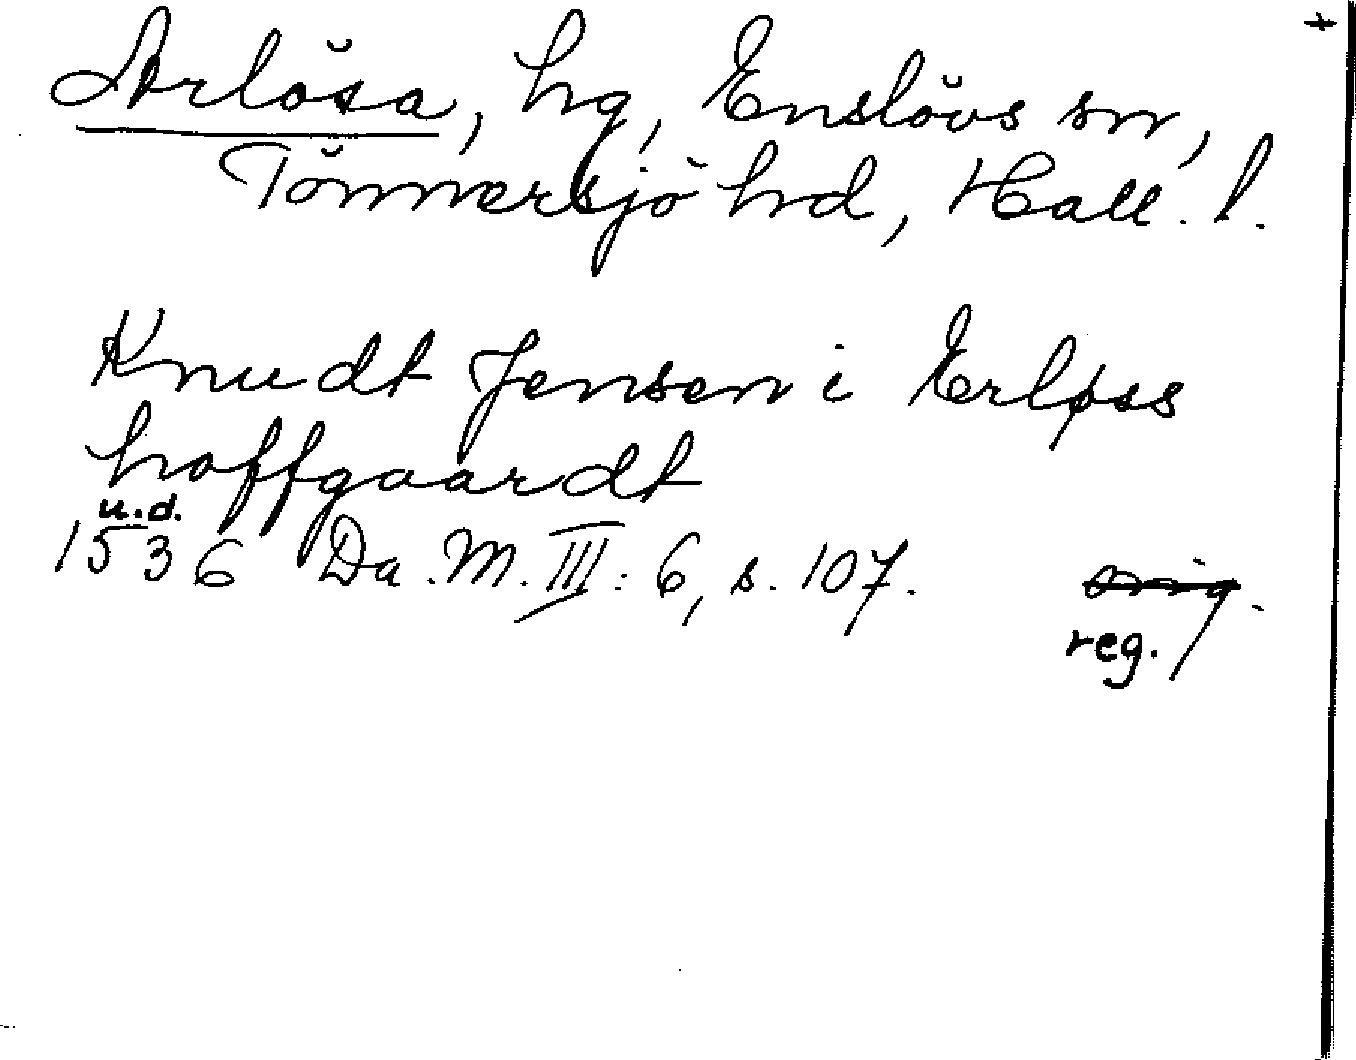 +
Arlösa, hg, Enslövs sn,
Tönnersjö hd, Hall. l.
Knudt Jensen i Erløss
hoffgaardt
u.d.
1536 Da. M. III: 6, s. 107. orig.
reg.